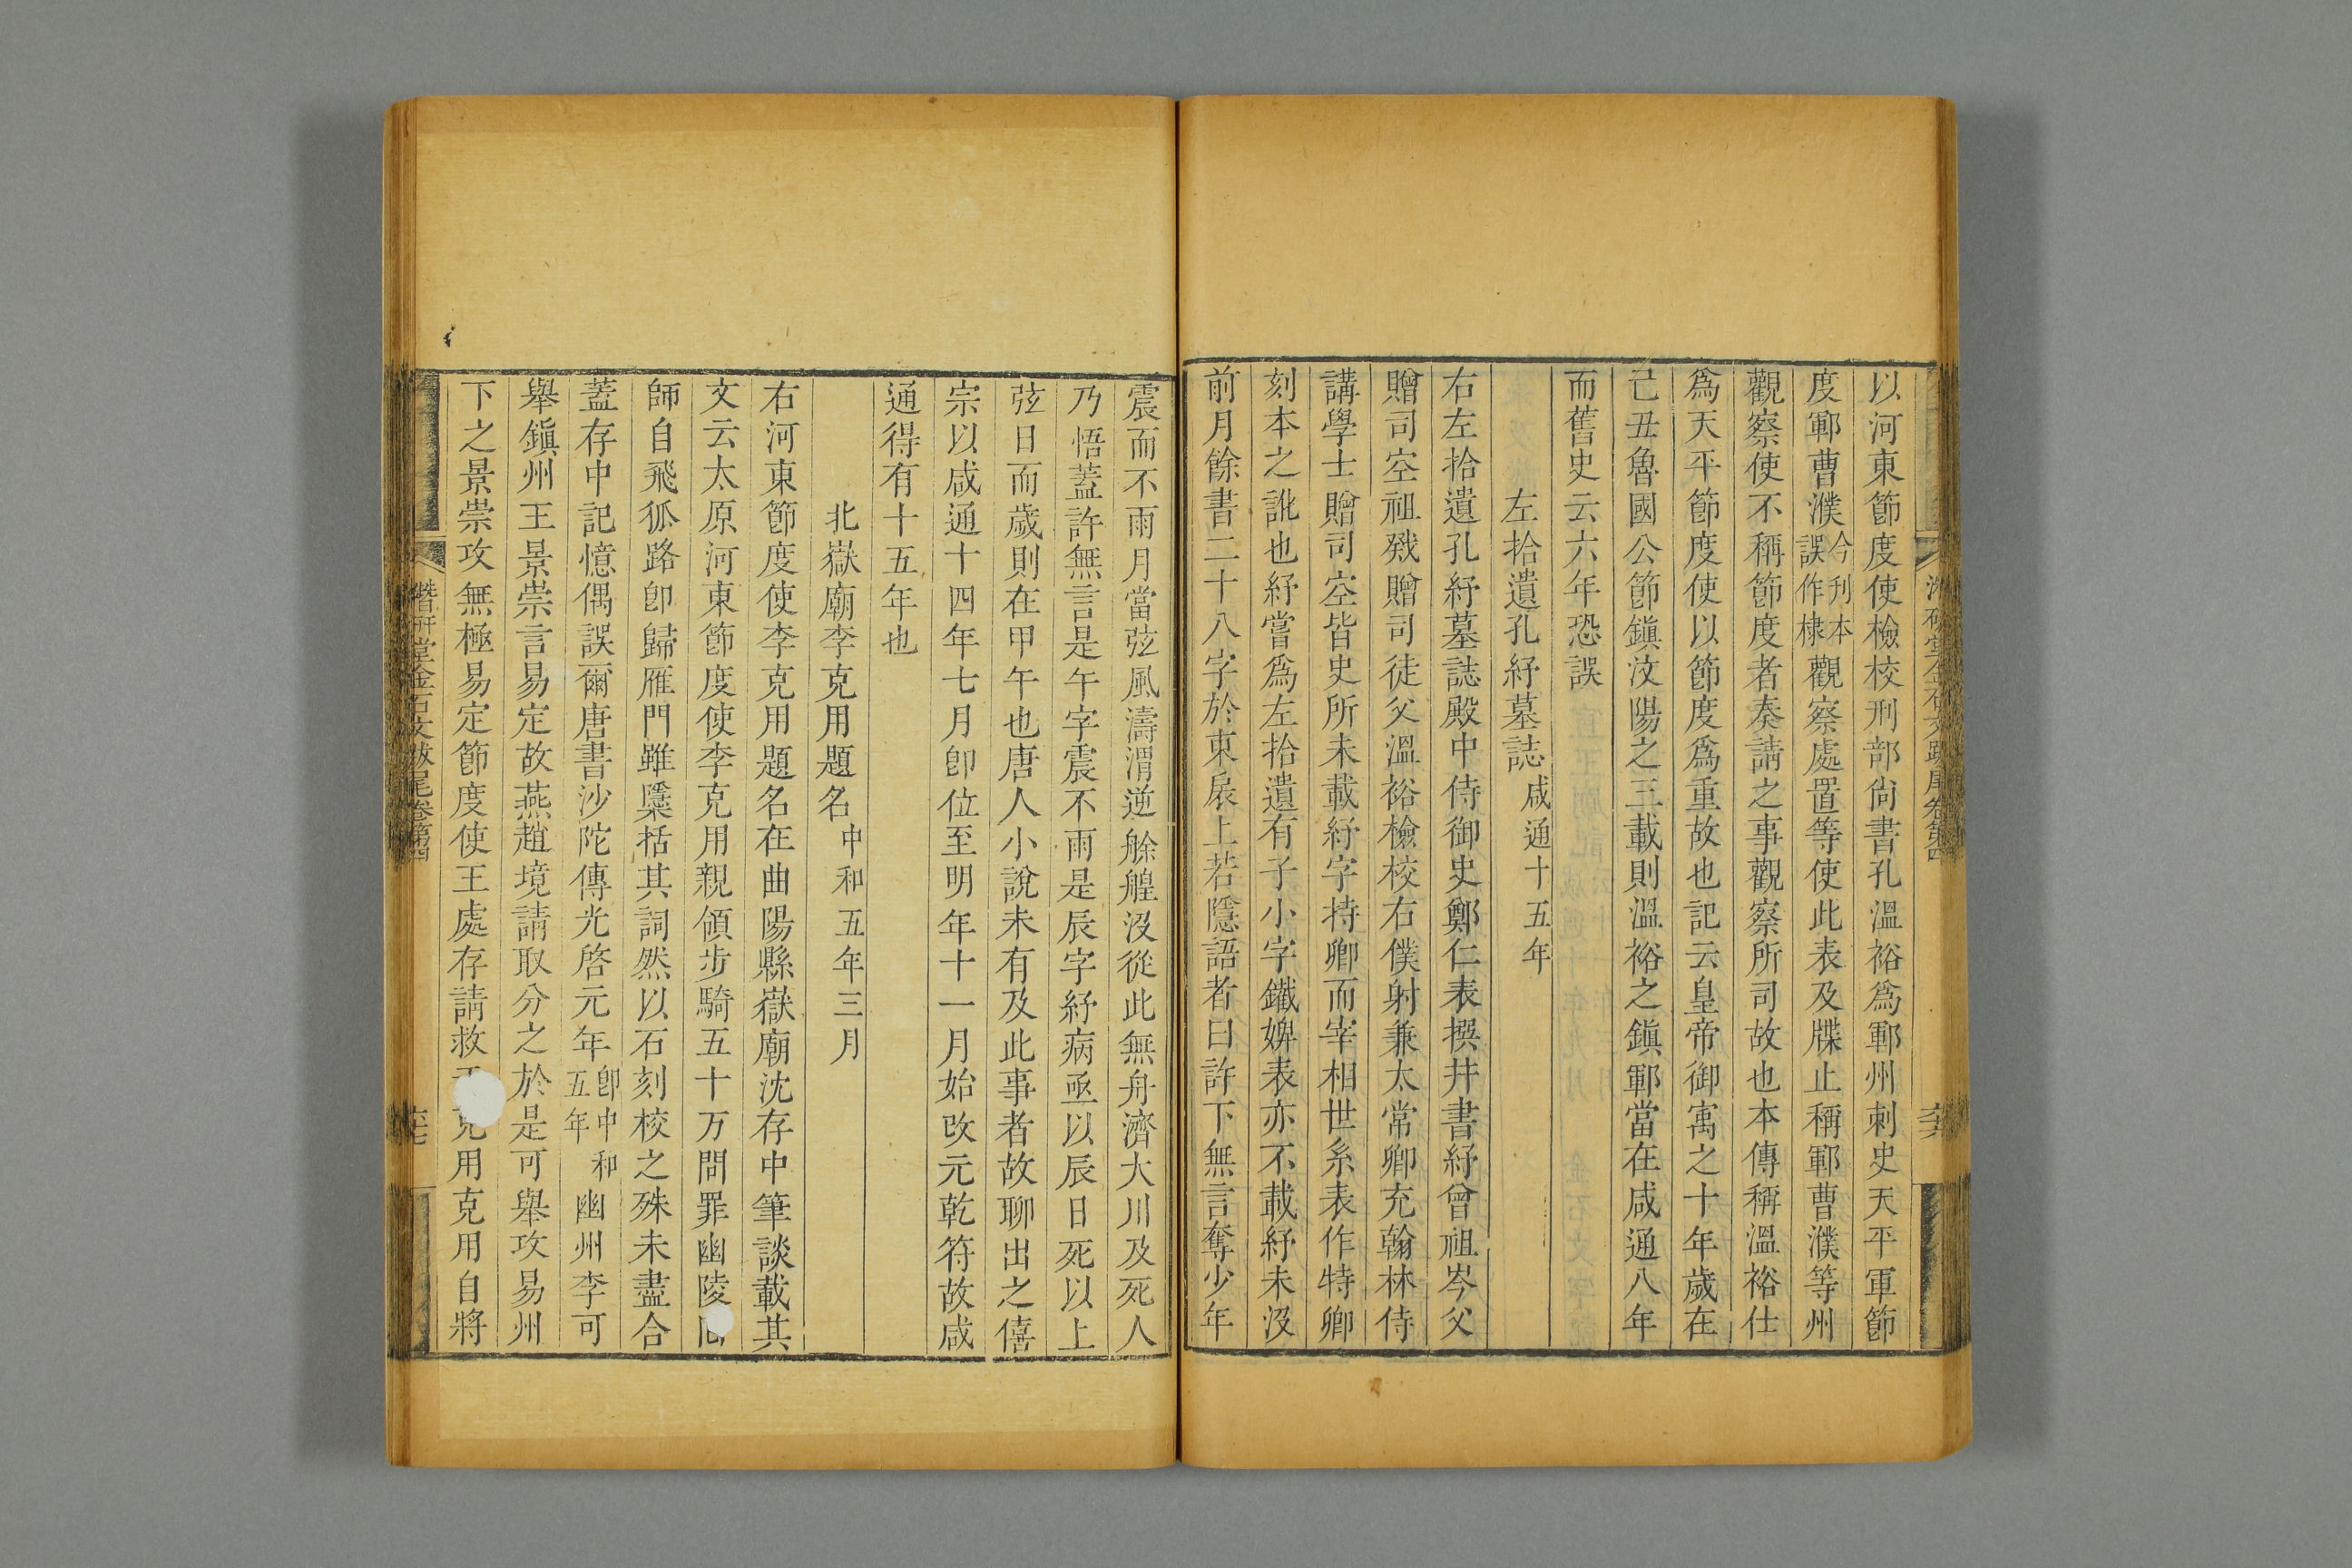 以河東節度使檢校刑部尙書孔溫裕爲鄆州刺史天平軍節
度鄆曹濮今刋本誤作棣觀察處置等使此表及牒止稱鄆曹濮等州
觀察使不稱節度者奏請之事觀察所司故也本傳稱溫裕仕
爲天平節度使以節度爲重故也記云皇帝御寓之十年歲在
己丑魯國公節鎭汶陽之三載則溫裕之鎭鄆當在咸通八年
而舊史云六年恐誤
左拾遺孔紓墓誌咸通十五年
右左拾遺孔紓墓誌殿中侍御史鄭仁表撰并書紓曾祖岑父
贈司空祖戣贈司徒父溫裕檢校右僕射兼太常卿充翰林侍
講學士贈司空皆史所未載紓字持卿而宰相世系表作特卿
刻本之訛也紓嘗爲左拾遺有子小字鐵婢表亦不載紓未没
前月餘書二十八字於東扆上若隱語者曰許下無言奪少年
震而不雨月當弦風濤渭逆艅艎没從此無舟濟大川及死人
乃悟蓋許無言是午字震不雨是辰字紓病亟以辰日死以上
弦日而歲則在甲午也唐人小說未有及此事者故聊出之僖
宗以咸通十四年七月卽位至明年十一月始改元乾符故咸
通得有十五年也
北嶽廟李克用題名中和五年三月
右河東節度使李克用題名在曲陽縣嶽廟沈存中筆談載其
文云太原河東節度使李克用親領步騎五十万問罪幽陵回
師自飛狐路卽歸雁門雖櫽栝其詞然以石刻校之殊未盡合
蓋存中記憶偶誤爾唐書沙陀傳光啓元年卽中和五年幽州李可
舉鎭州王景崇言易定故燕趙境請取分之於是可舉攻易州
下之景崇攻無極易定節度使王處存請救克用克用自將
潛研堂金石文跋尾卷第四
六六
潛研堂金石文跋尾卷第四
六七